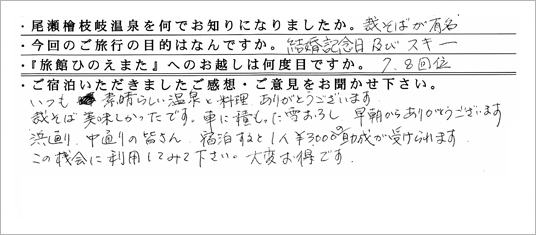 ・尾瀬檜枝岐温泉を何でお知りになりましたか。裁そばが有名
・今回のご旅行の目的はなんですか。結婚記念日及びスキー
・『旅館ひのえまた』へのお越しは何度目ですか。7、8回位
・ご宿泊いただきましたご感想・ご意見をお聞かせ下さい。
いつも 素晴らしい温泉と料理、ありがとうございます
裁そば美味しかったです。車に積もった雪おろし、早朝からありがとうございます
浜通り、中通りの皆さん、宿泊すると1人¥3,000の助成が受けられます
この機会に利用してみて下さい。大変お得です。